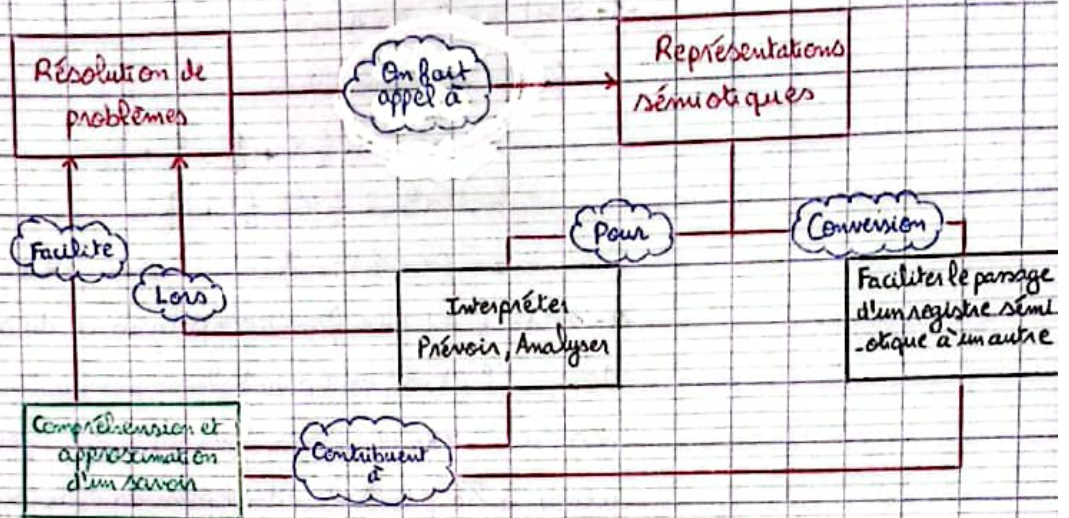 Résolution de
problèmes
On fait
appel à
Représentations
sémiotiques
Facilite
Lors
Pour
Conversion
Interpréter
Prévoir, Analyser
Faciliter le passage
d'un registre sémi
-otique à un autre
Compréhension et
approximation
d'un savoir
Contribuent
à